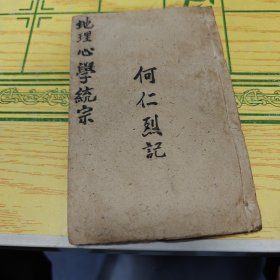 地理心學統宗
何仁烈記